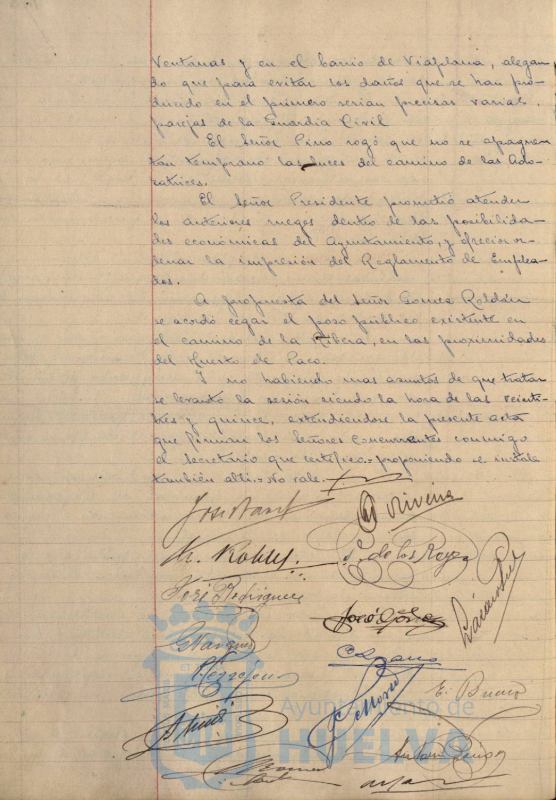 Ventanas y en el barrio de Viaplana, alegan
do que para evitar los daños que se han pro
ducido en el primero serian precisas varias
parejas de la Guardia Civil
El Señor Pino rogó que no se apaguen
tan temprano las luces del camino de las Ado-
ratrices.
El Señor Presidente prometió atender
los anteriores ruegos dentro de las posibilida-
des económicas del Ayuntamiento, y ofreció or
denar la impresión del Reglamento de Emplea
dos.
A propuesta del Señor Gomez Roldán
se acordó cegar el pozo público existente en
el camino de la Ribera, en las proximidades
del Huerto de Paco.
Y no habiendo mas asuntos de que tratar
se levantó la sesión siendo la hora de las veinti-
trés y quince, extendiendose la presente acta
que firman los Señores Concurrentes conmigo
el secretario que certifico.- proponiendo se instale
también alli.- No vale.-
Oliveira
R. Robles. S. de los Reyes
José Rodriguez
E. Bueno
Ayuntamiento de
HUELVA